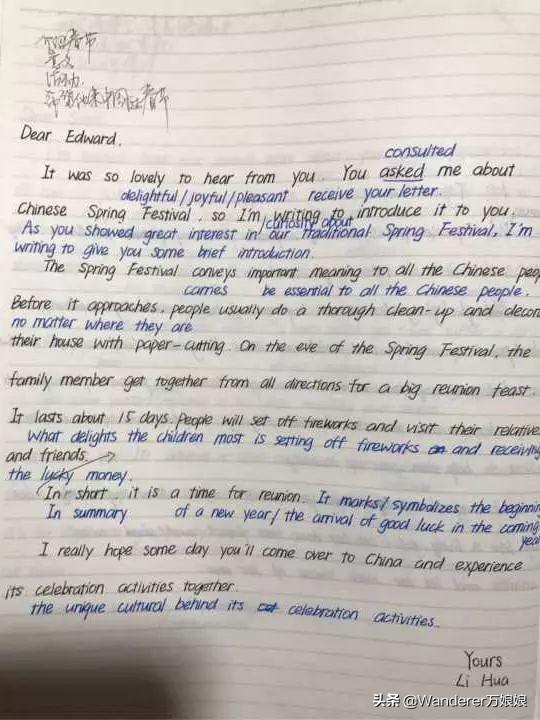 介绍春节
意义
活动
希望他来中国过春节
Dear Edward,
consulted
It was so lovely to hear from you. You asked me about
delightful/joyful/pleasant receive your letter.
Chinese Spring Festival, so I'm writing to introduce it to you.
curiosity about
As you showed great interest in our traditional Spring Festival, I'm
writing to give you some brief introduction.
The Spring Festival conveys important meaning to all the Chinese peop
carries be essential to all the Chinese people.
Before it approaches, people usually do a thorough clean-up and decor
no matter where they are
their house with paper-cutting. On the eve of the Spring Festival, the
family member get together from all directions for a big reunion feast.
It lasts about 15 days. People will set off fireworks and visit their relative
What delights the children most is setting off fireworks and receiving
and friends.
the lucky money.
In short, it is a time for reunion. It marks/symbolizes the beginnin
In summary of a new year/the arrival of good luck in the coming
year
I really hope some day you'll come over to China and experience
its celebration activities together.
the unique cultural behind its celebration activities.
Yours
Li Hua
头条 @Wanderer万娘娘